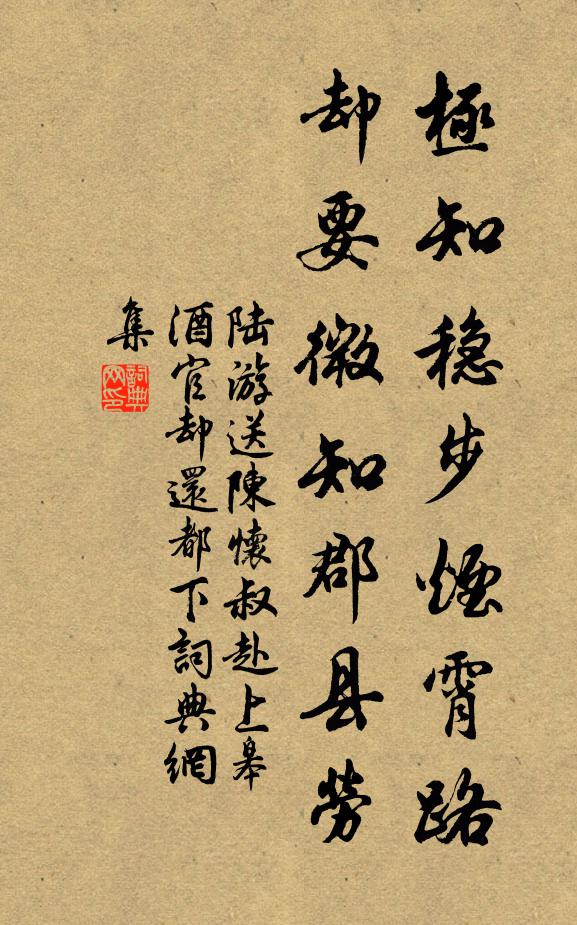 極知稳步煙霄路
却要微知郡县勞
陆游送陳懷叔赴上皋
酒官却還都下詞典網
集
詞典网印